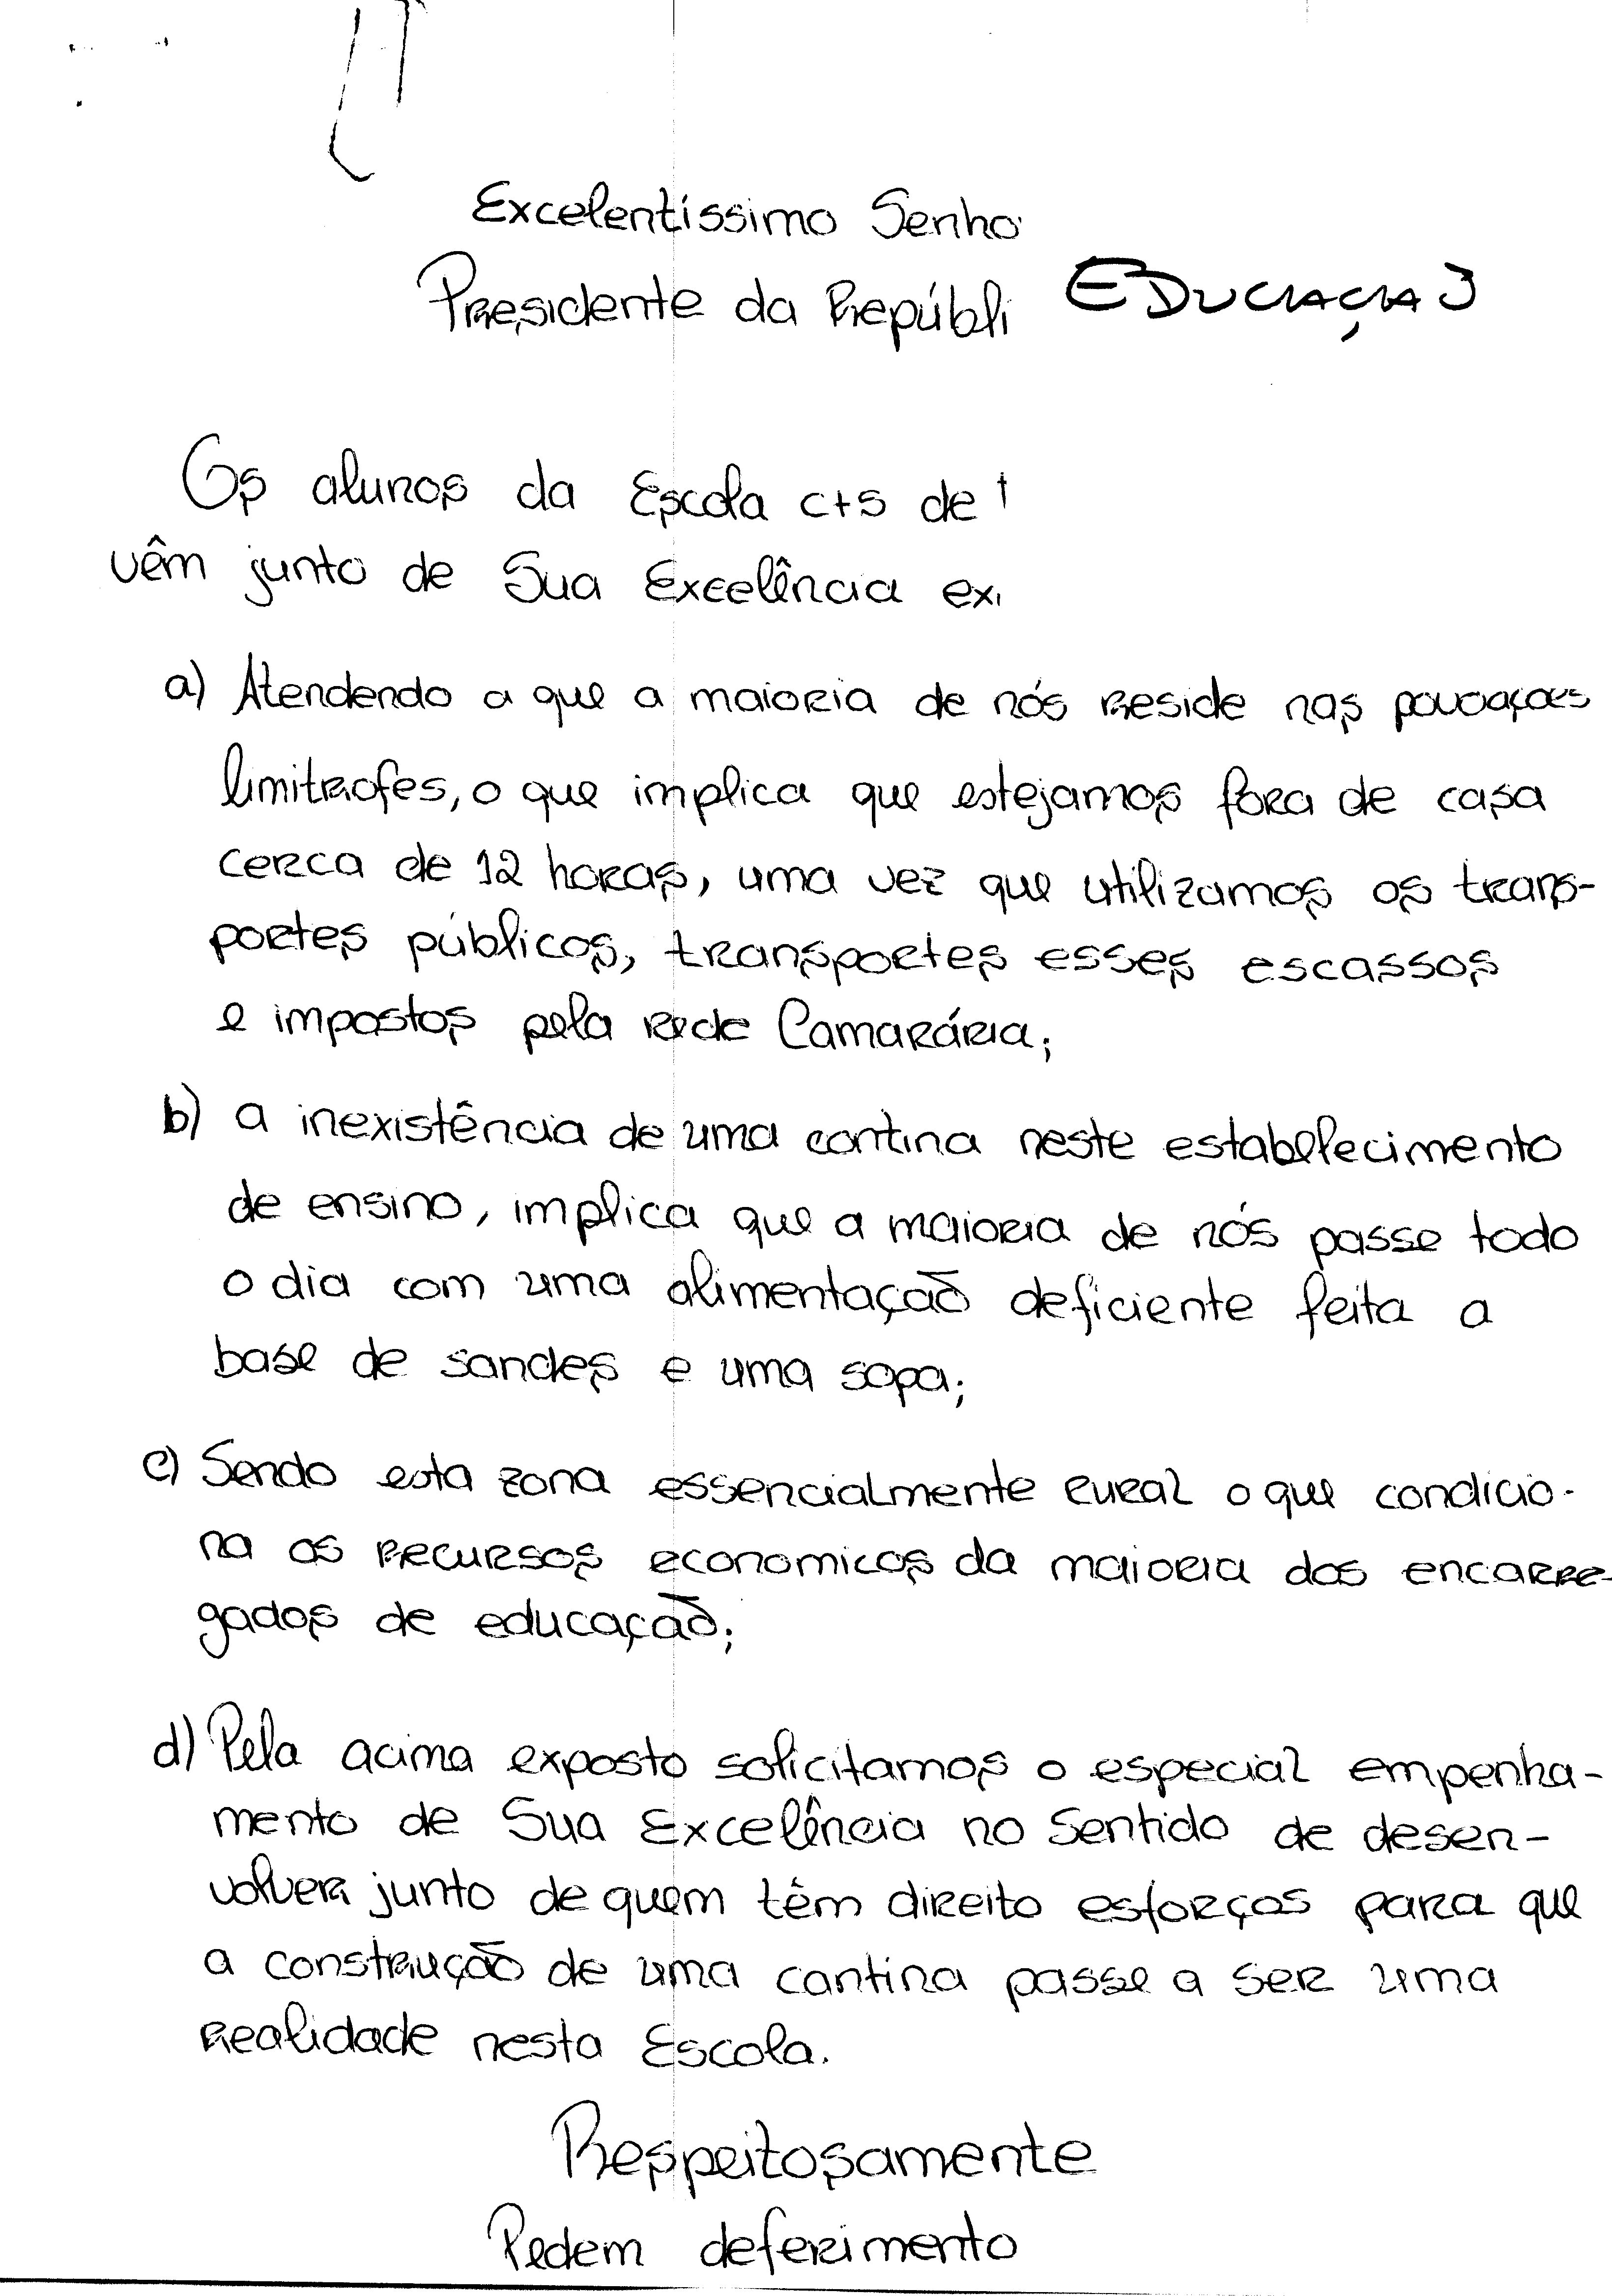 Excelentíssimo Senho
Presidente da Repúbli EDUCAÇAO
Os alunos da Escola C+S de
vêm junto de Sua Excelência ex
a) Atendendo a que a maioria de nós reside nas povoações
limitrofes, o que implica que estejamos fora de casa
cerca de 12 horas, uma vez que utilizamos os trans-
portes públicos, transportes esses escassos
e impostos pela rede Camarária;
b) a inexistência de uma cantina neste estabelecimento
de ensino, implica que a maioria de nós passe todo
o dia com uma alimentação deficiente feita a
base de sandes e uma sopa;
c) Sendo esta zona essencialmente rural o que condicio-
na os recursos economicos da maioria dos encarre-
gados de educação;
d) Pela acima exposto solicitamos o especial empenha-
mento de Sua Excelência no sentido de desen-
volver junto de quem têm direito esforços para que
a construção de uma cantina passe a ser uma
realidade nesta Escola.
Respeitosamente
Pedem deferimento